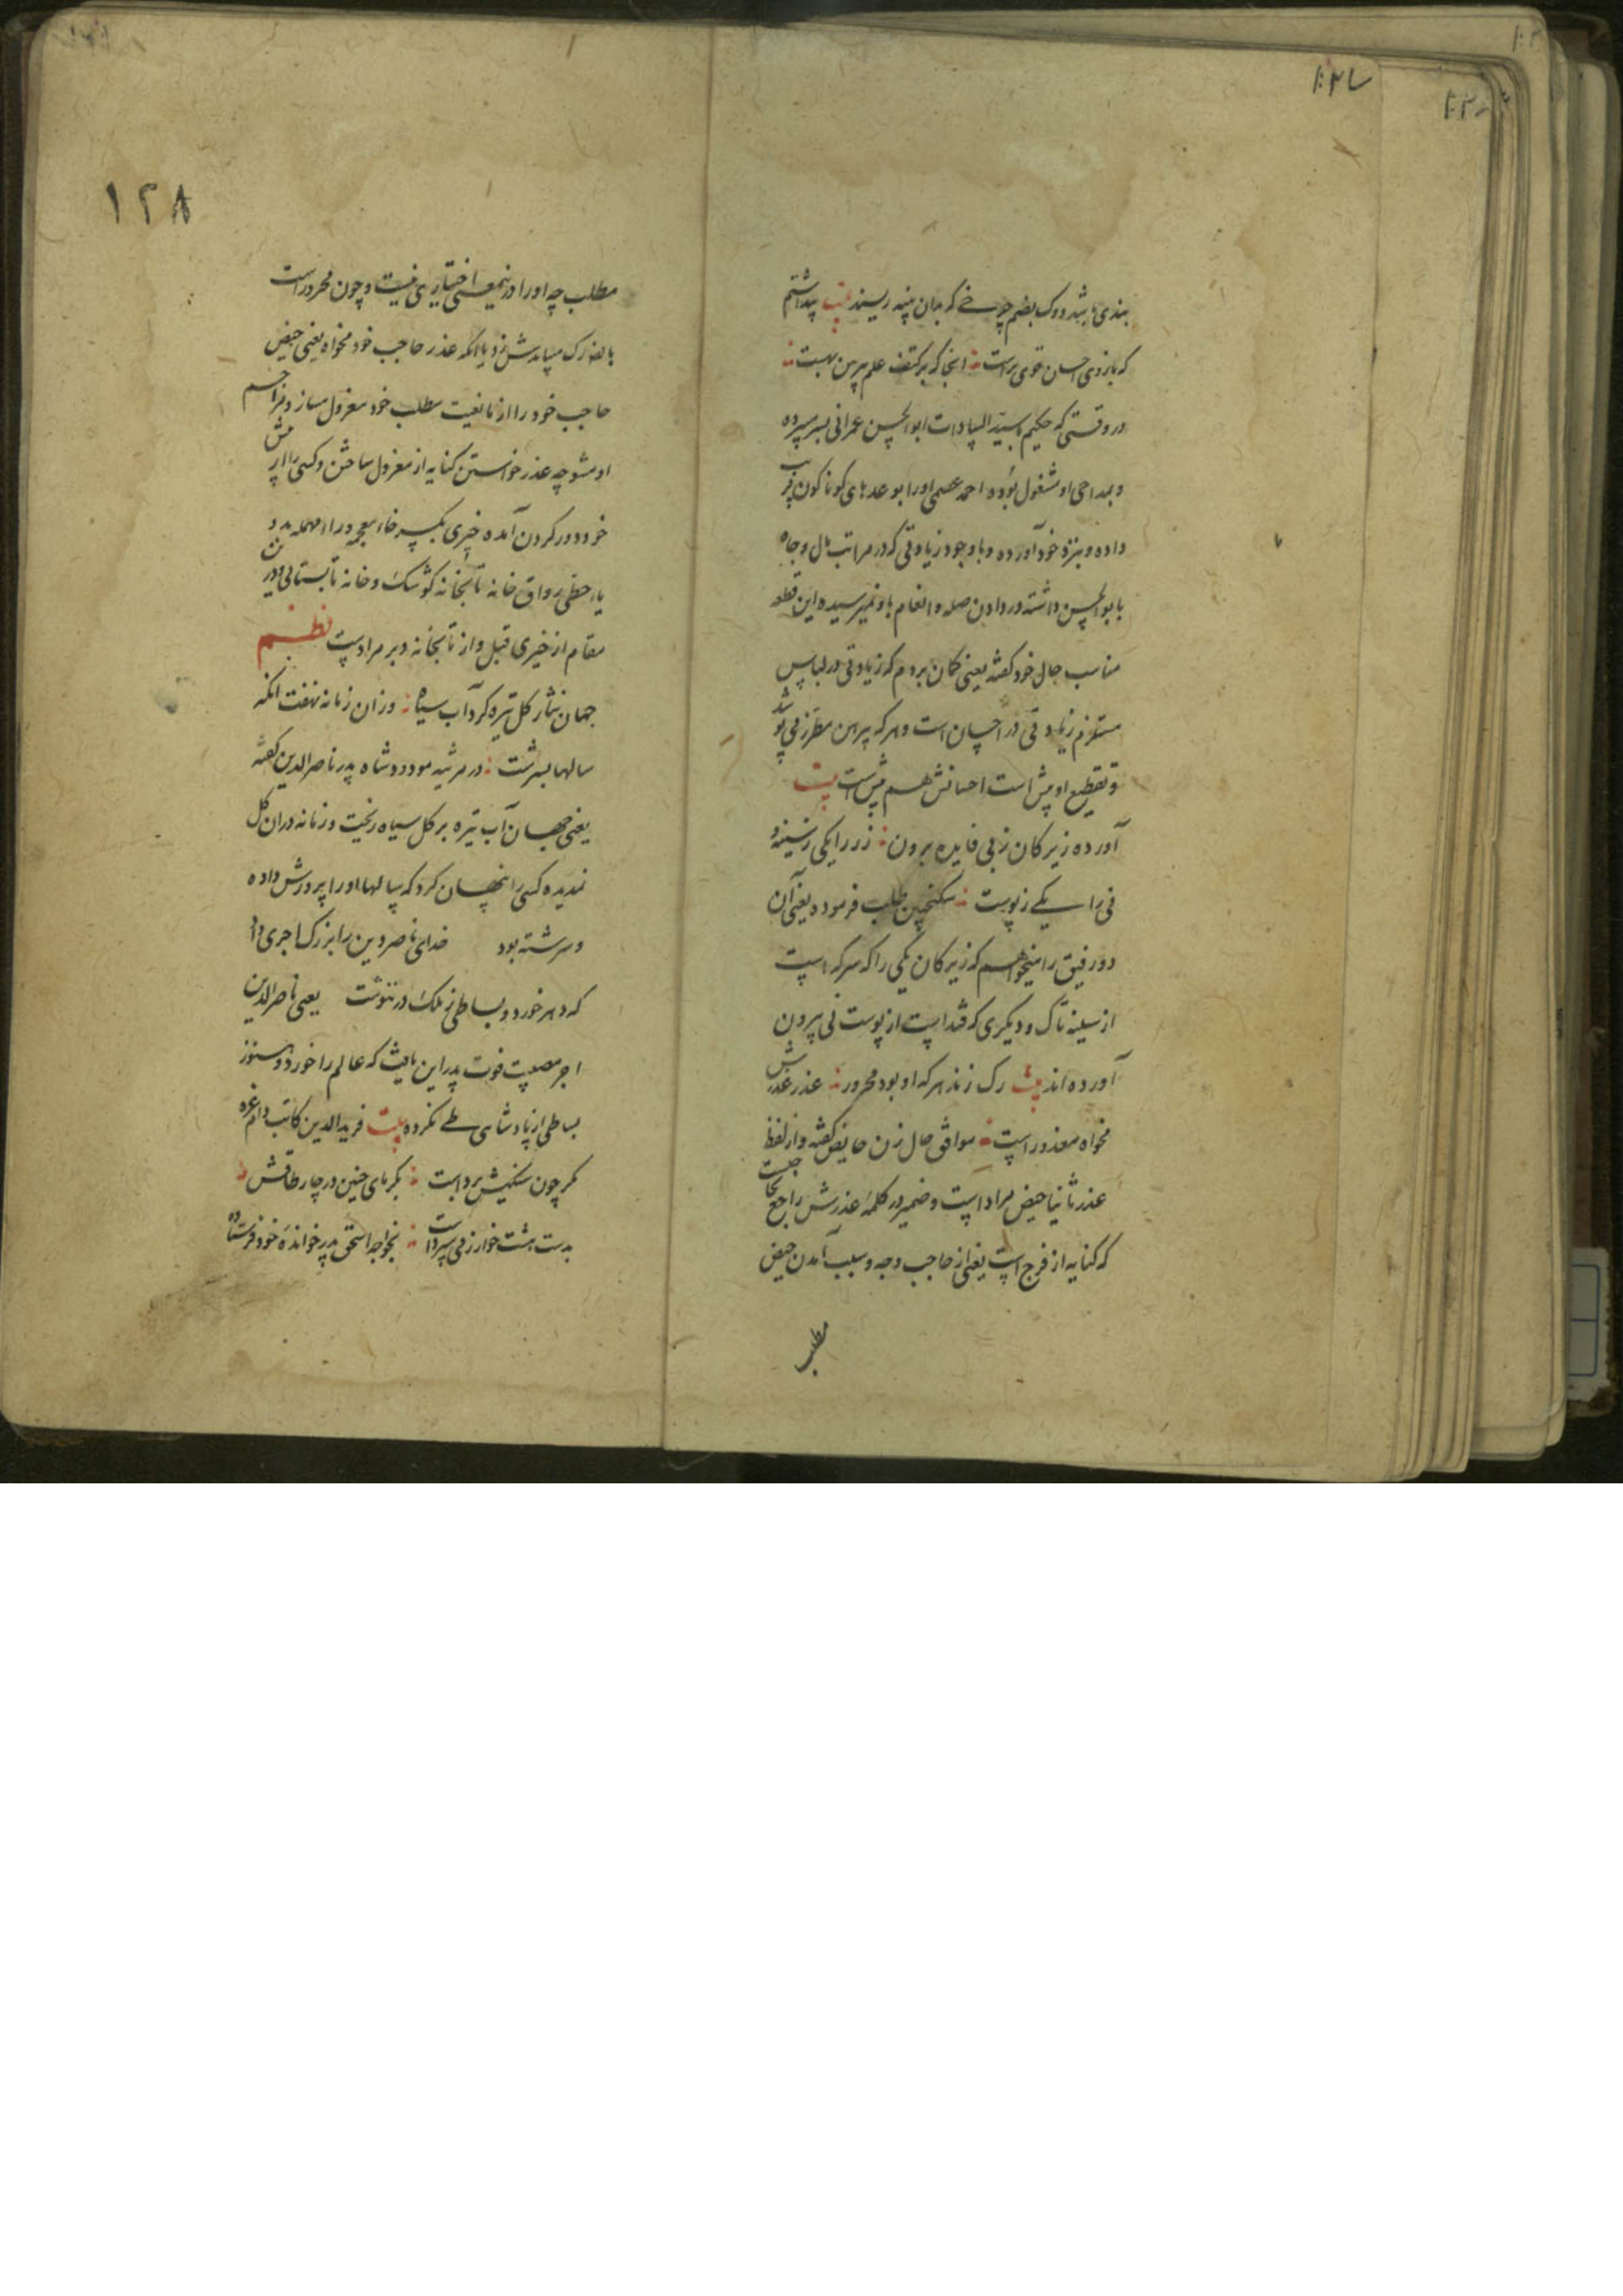 بندی باشد دوک بضم چوبی که بدان پنبه ریسند بیت پنداشتم
که بازوی احسان قوی تر است انجا که بر کتف علم پیرهن بهست
در وقتی که حکیم با سید السادات ابوالحسن عمرانی بسر میبرده
و بمداحی او مشغول بوده احمد عصمی او را بوعدهای کوناکون فریب
داده و بنزد خود آورده و با وجود زیادتی که در مراتب مال و جاه
با بوالحسن داشته در دادن صله و انعام باو نمیرسیده این قطعه
مناسب حال خود کفته یعنی کمان بردم که زیادتی در لباس
مستلزم زیادتی در احسان است و هر که پیرهن مطرز می پوشد
و تقطیع او بیش است احسانش هم بیش است بیت
آورده زیرکان ز پی فایده برون زر را یکی ز سینه و
نی را یکی ز پوست سکنجبین طلب فرموده یعنی آن
دو رفیق را میخواهم که زیرکان یکی را که سرکه است
از سینه تاک و دیکری که قند است از پوست نی بیرون
آورده اند بیت رک زند هر که او بود محرور عذر عذرش
مخواه معذور است موافق حال زن حایض کفته و از لفظ
عذر ثانیا حیض مراد است و ضمیر در کلمه عذرش راجع بحاجبست
که کنایه از فرج است یعنی از حاجب وجه و سبب آمدن حیض
مطلب
۱۲۸
مطلب چه او را درینمعنی اختیاری نیست و چون محرور است
بالضه رک میبایدش زد یا انکه عذر حاجب خود مخواه یعنی حیض
حاجب خود را از مانعیت مطلب خود معزول مساز و مزاحم
او مشو چه عذر خواستن کنایه از معزول ساختن و کسی را از پیش
خود دور کردن آمده خیری بکسر خاء معجمه و راء مهمله بدو
یاء حطی رواق خانه تابخانه کوشک و خانه تابستانی و درین
مقام از خیری قبل و از تابخانه دبر مراد است نظم
جهان نثار کل تیره کرد آب سیاه وزان زمانه نهفت انکه
سالها بسرشت در مرثیه مودود شاه پدر ناصرالدین کفته
یعنی جهان آب تیره بر کل سیاه ریخت و زمانه در ان کل
ندیده کسی را پنهان کرد که سالها او را پرورش داده
و سرشته بود خدای ناصر دین را بزرک اجری داد
که دهر خورد و بساطی ز ملک در ننوشت یعنی ناصرالدین
اجر مصیبت فوت پدر این یافت که عالم را خورد و هنوز
بساطی از پادشاهی طی نکرده بیت فریدالدین کاتب دام عزه
مکر چون سنکیش برد است بکرمای چنین در چار طاقش
بدست هشت خوارزمی سپرد است بخواجه اسحق پدر خوانده خود فرستاده